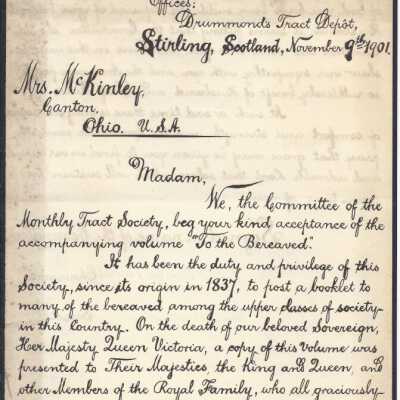 Offices:
Drummond's Tract Depôt,
Stirling, Scotland, November 9th 1901.
Mrs. McKinley,
Canton,
Ohio. U.S.A.
Madam,
We, the Committee of the
Monthly Tract Society, beg your kind acceptance of the
accompanying volume "To the Bereaved."
It has been the duty and privilege of this
Society, since its origin in 1837, to post a booklet to
many of the bereaved among the upper classes of society
in this Country. On the death of our beloved Sovereign,
Her Majesty Queen Victoria, a copy of this volume was
presented to Their Majesties, the King and Queen, and
other Members of the Royal Family, who all graciously